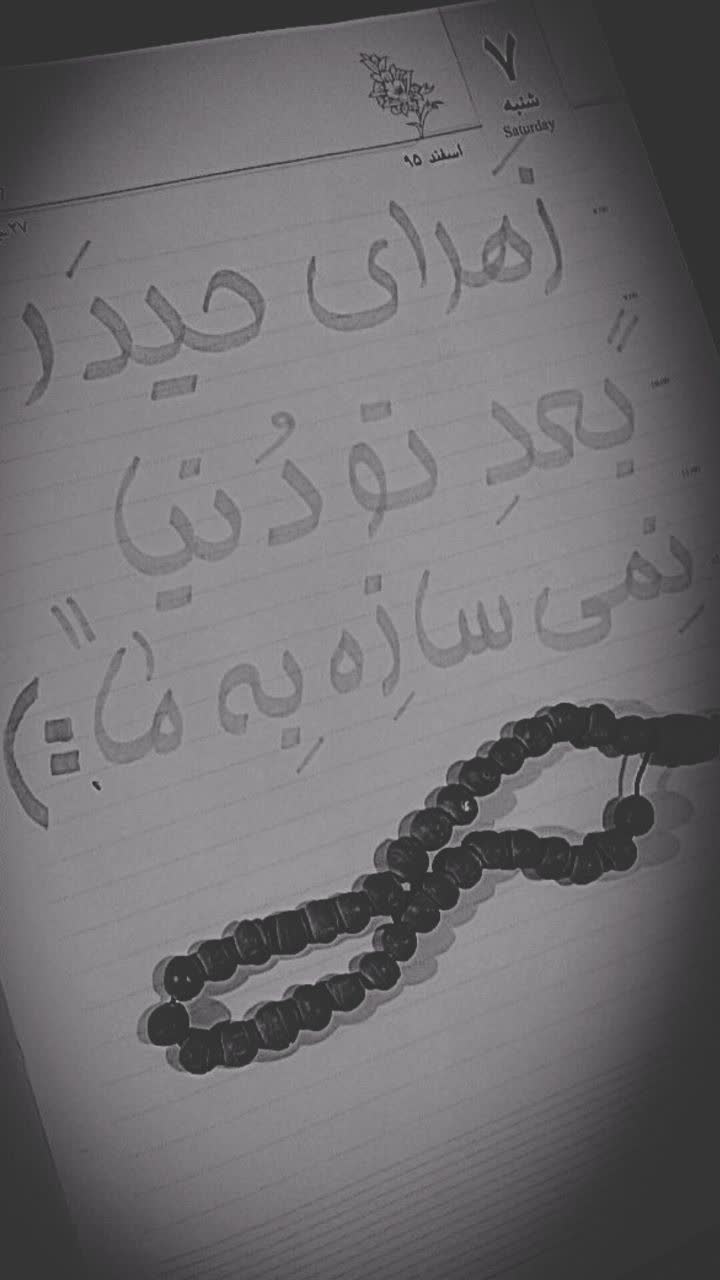 ۷
شنبه
Saturday
اسفند ۹۵
زَهرای حیدَر
"بَعدِ تو دُنیا
نِمی سازِه بِه ما":)